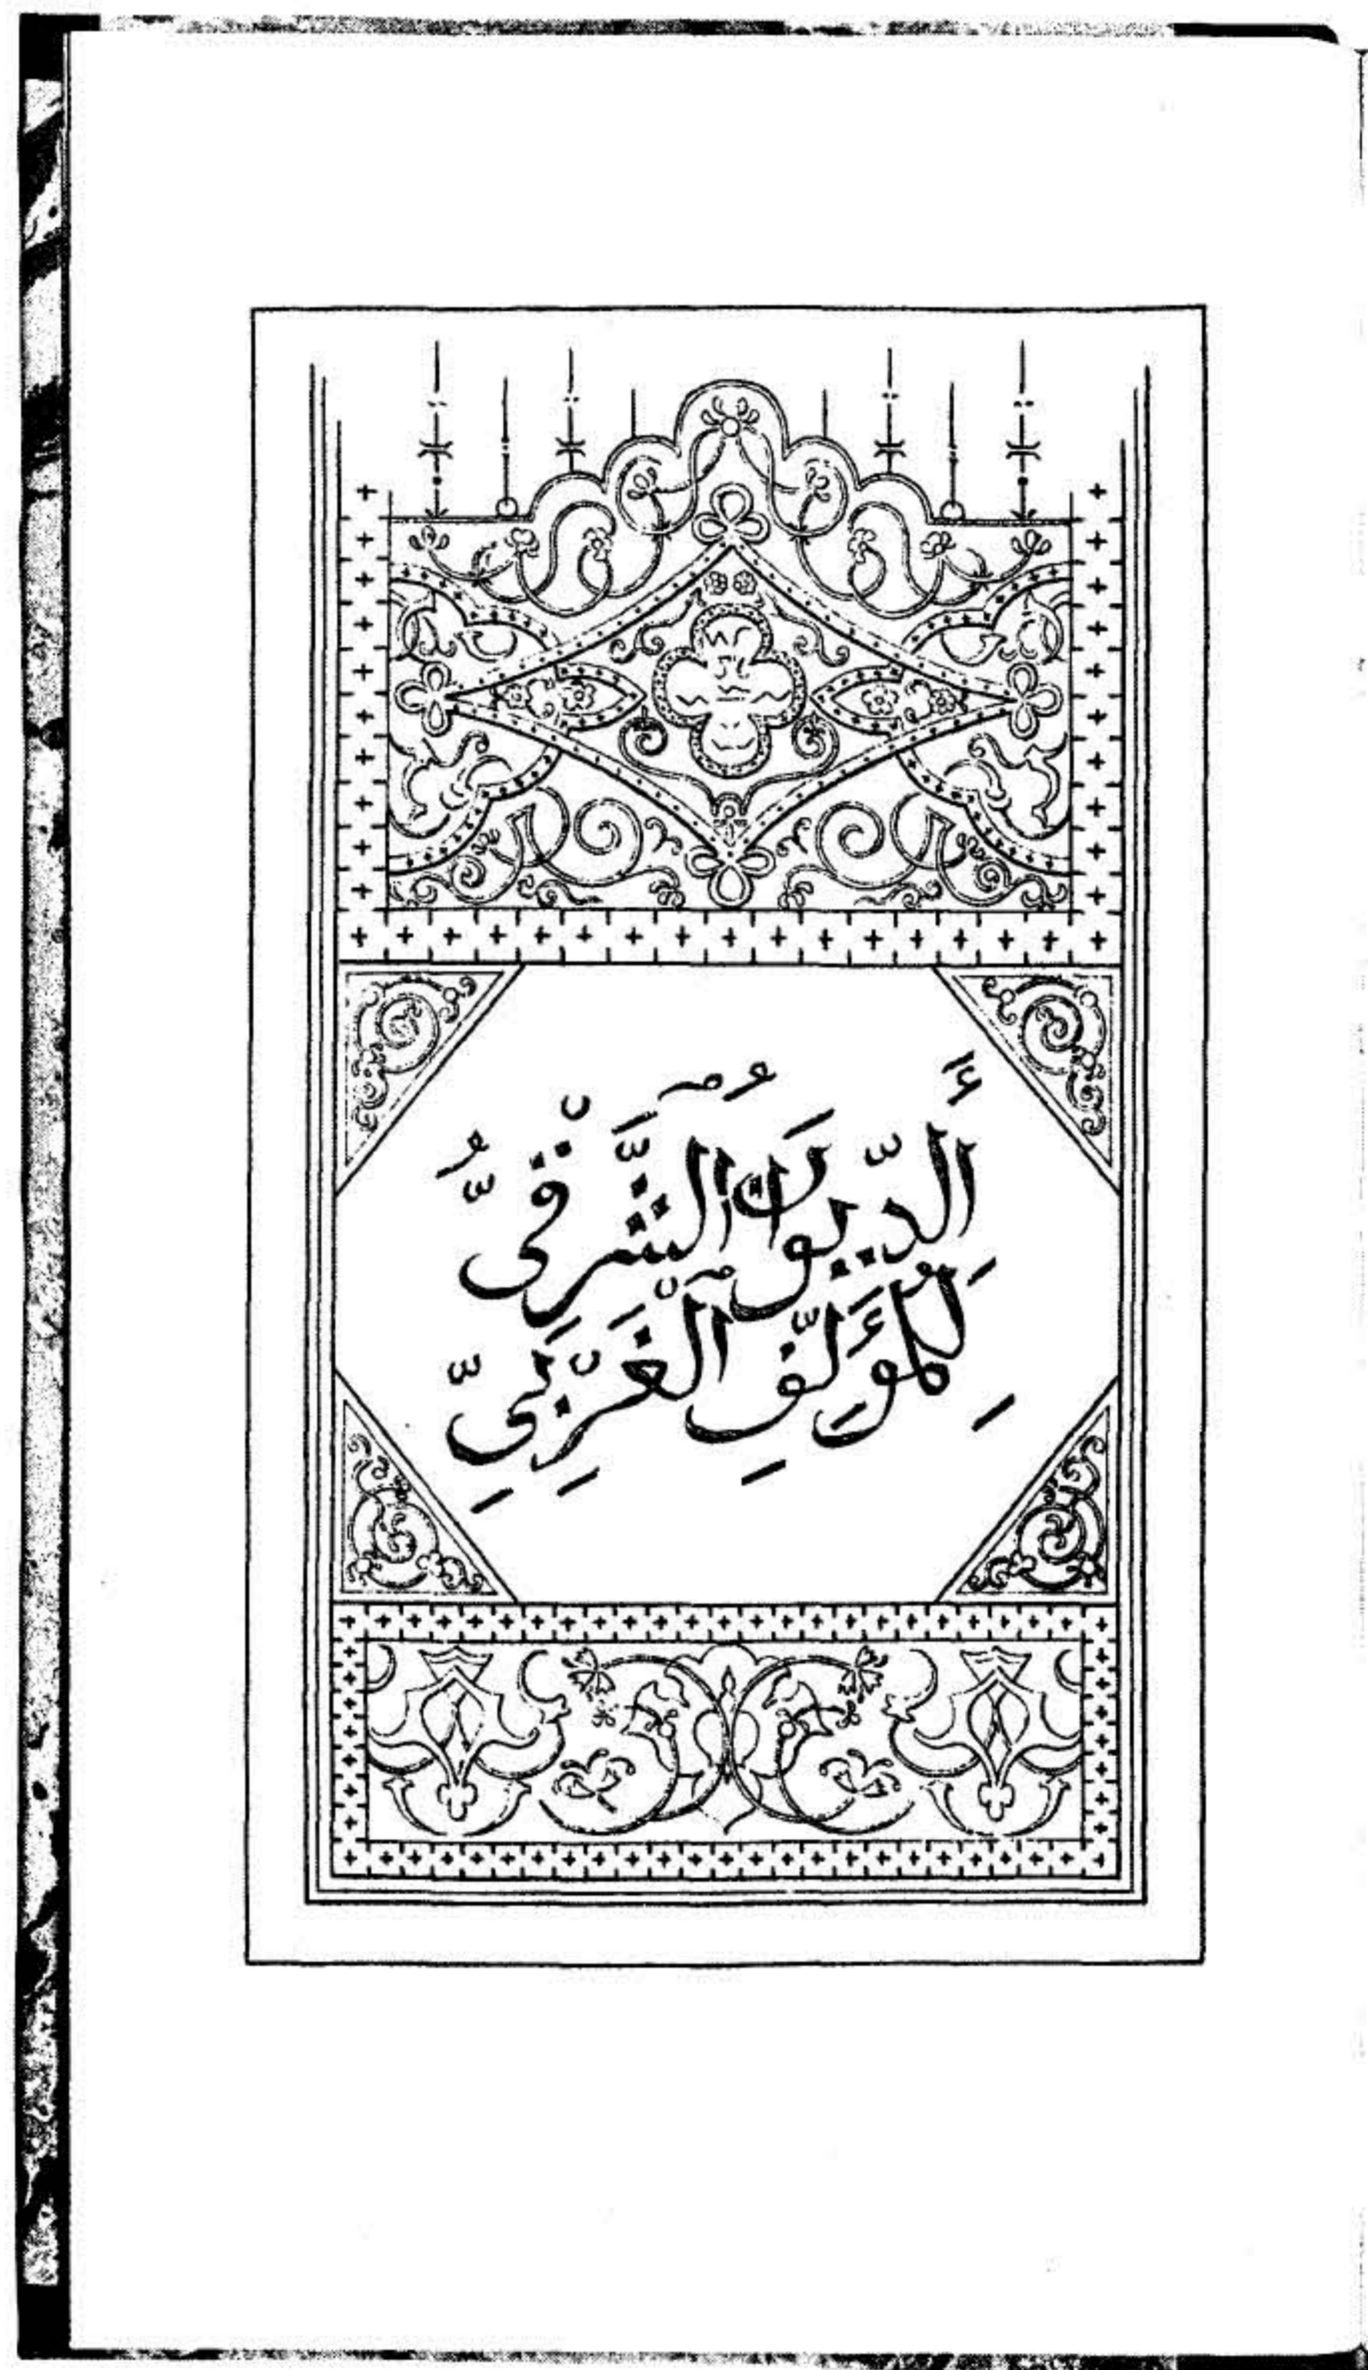 أَلدِّيوَانُ ٱلشَّرْقِىُّ
لِلْمُؤَلِّفِ ٱلْغَرْبِىِّ